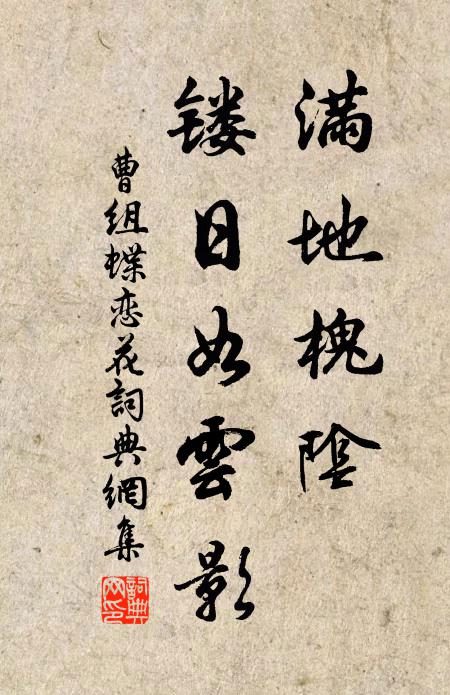 滿地槐陰
镂日如雲影
曹组蝶恋花詞典網集
詞典